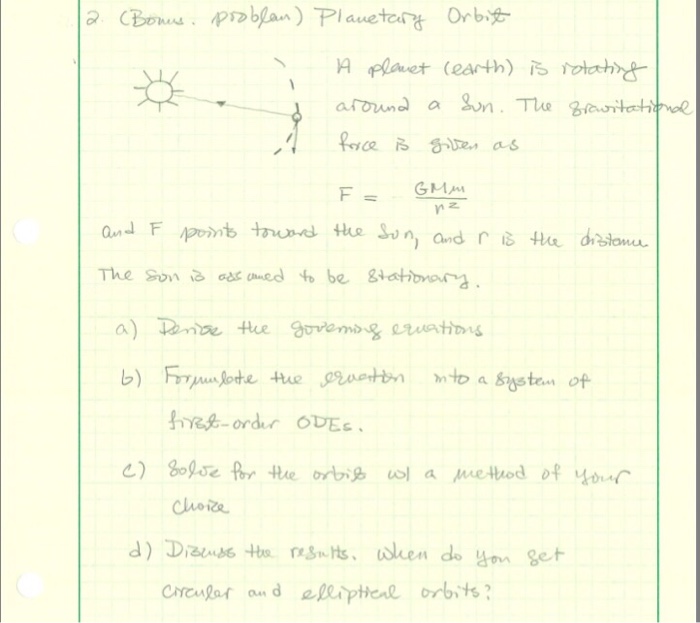 2. (Bonus. problem) Planetary Orbit
A planet (earth) is rotating
around a Sun. The gravitational
force is given as
F = GMm / r²
and F points toward the Sun, and r is the distance
The Sun is assumed to be stationary.
a) Derive the governing equations
b) Formulate the equation into a system of
first-order ODEs.
c) Solve for the orbits w/ a method of your
choice
d) Discuss the results. When do you get
circular and elliptical orbits?